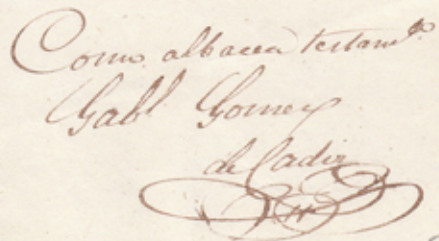 Como albacea testamto
Gabl Gomez
de Cadiz